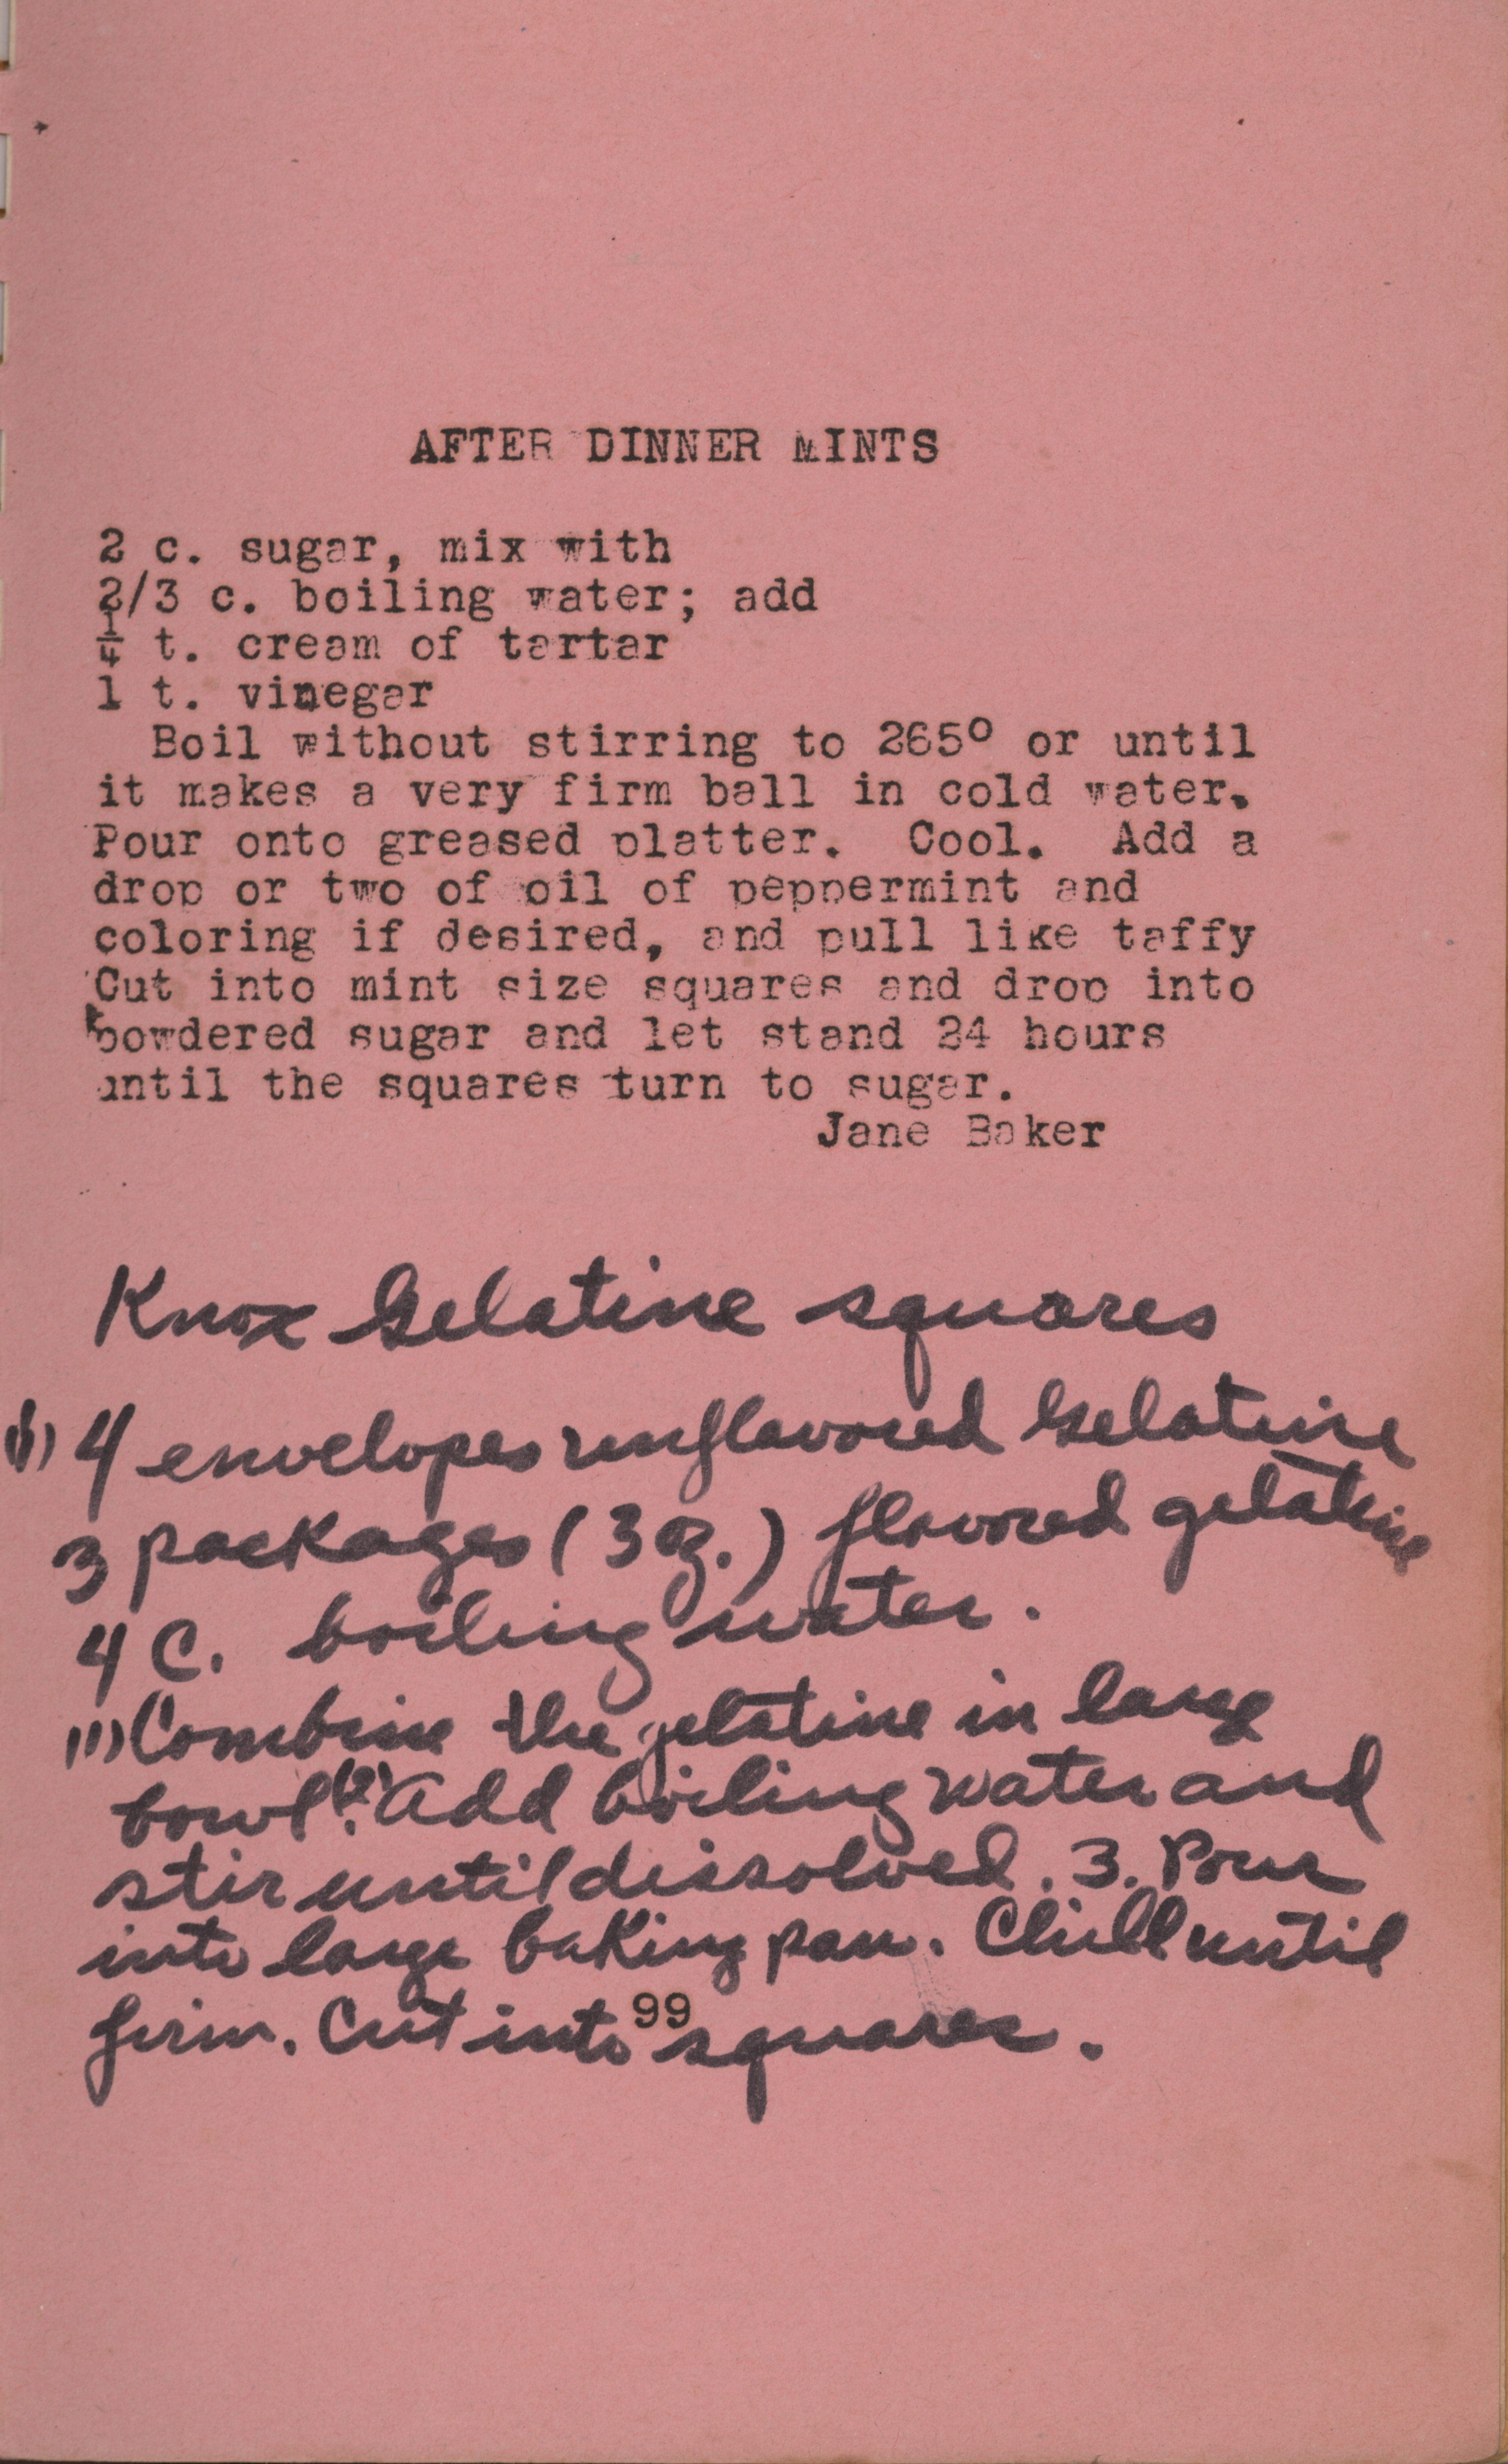 AFTER DINNER MINTS
2 c. sugar, mix with
2/3 c. boiling water; add
¼ t. cream of tartar
1 t. vinegar
Boil without stirring to 265° or until
it makes a very firm ball in cold water.
Pour onto greased platter. Cool. Add a
drop or two of oil of peppermint and
coloring if desired, and pull like taffy
Cut into mint size squares and drop into
powdered sugar and let stand 24 hours
until the squares turn to sugar.
Jane Baker
Knox Gelatine squares
(1) 4 envelopes unflavored Gelatine
3 packages (3 oz.) flavored gelatine
4 C. boiling water.
(1) Combine the gelatine in large
bowl. (2) Add boiling water and
stir until dissolved. 3. Pour
into large baking pan. Chill until
firm. Cut into squares.
99